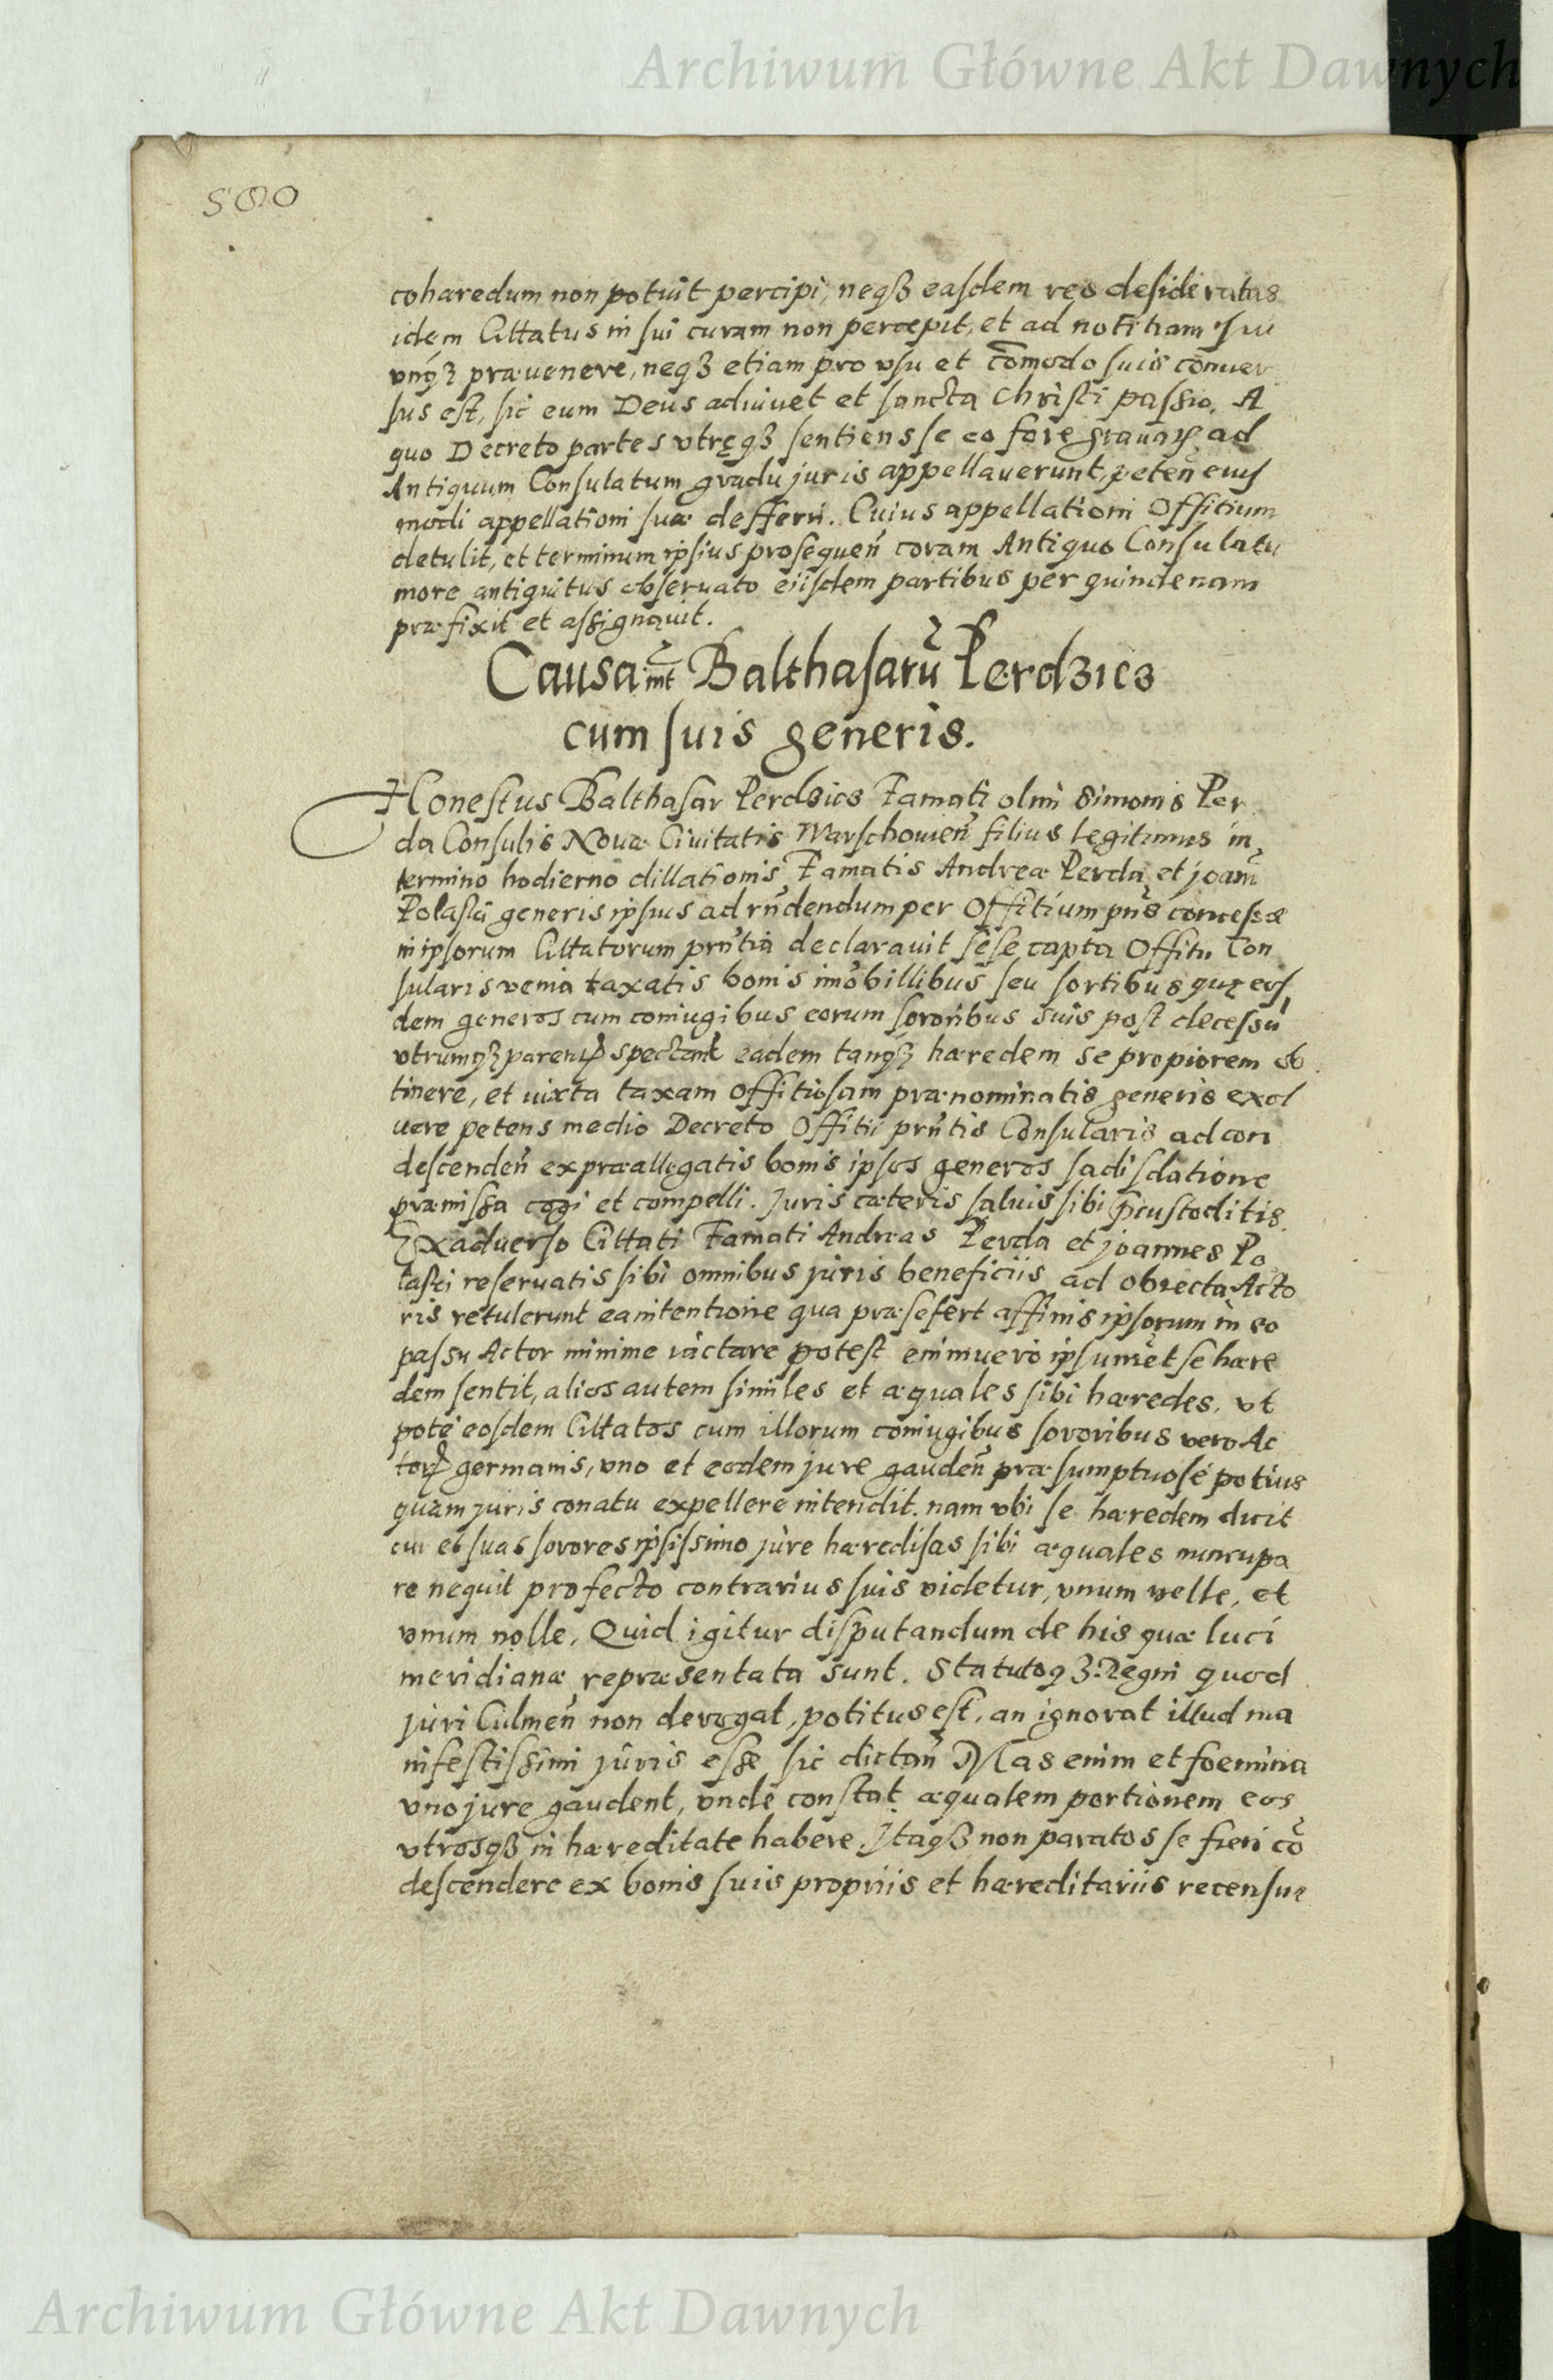 Archiwum Główne Akt Dawnych
500
cohæredum non potuit percipi, neqꝫ easdem res desideratas
idem Cittatus in sui curam non percepit, et ad notitiam sui
vnqꝫ præuenere, neqꝫ etiam pro vsu et com̄odo suis conuer
sus est, sic eum Deus adiuuet et sancta Christi passio. A
quo Decreto partes vtręqꝫ sentiens se eo fore grauaꝝ ad
Antiquum Consulatum gradu juris appellauerunt, peteñ eius
modi appellationi suæ defferri. Cuius appellationi Offitium
detulit, et terminum ipsius prosequeñ coram Antiquo Consulatu
more antiquitus obseruato eiisdem partibus per quindenam
præfixit et assignauit.
Causa int Balthasarū Perdzicz
cum suis generis.
Honestus Balthasar Perdzicz Famati olim Simonis Per
da Consulis Nouæ Ciuitatis Warschouieñ filius legitimus in
termino hodierno dillationis Famatis Andreæ Perda et joañ
Polaski generis ipsius ad rñdendum per Offitium pñs concessæ
in ipsorum Cittatorum prñtia declarauit sese capta Offitii Con
sularis venia taxatis bonis imobillibus seu sortibus quę eos
dem generos cum coniugibus eorum sororibus suis post decessū
vtrumqꝫ parentꝝ spectant eadem tanqꝫ hæredem se propiorem ob
tinere, et iuxta taxam offitiosam prænominatis generis exol
uere petens medio Decreto Offitii prñtis Consularis ad con
descendeñ ex præallegatis bonis ipsos generos sadisdatione
præmissa cogi et compelli. Juris cæteris saluis sibi p̄custoditis.
Exaduerso Cittati Famati Andreas Perda et joannes Po
laski reseruatis sibi omnibus juris beneficiis ad obiecta Acto
ris retulerunt ea intentione qua præsefert affinis ipsorum in eo
passu Actor minime iactare potest enimuero ipsumet se hære
dem sentit, alios autem similes et æquales sibi hæredes, vt
pote eosdem Cittatos cum illorum coniugibus sororibus vero Ac
torꝝ germanis, vno et eodem jure gaudeñ præsumptuose potius
quam juris conatu expellere intendit. nam vbi se hæredem dicit
cur et suas sorores ipsissimo jure hæredisas sibi æquales nuncupa
re nequit profecto contrarius suis videtur, vnum velle, et
vnum nolle. Quid igitur disputandum de his quæ luci
meridianæ repræsentata sunt. Statutoqꝫ Regni quod
juri Culmeñ non derogat, potitus est, an ignorat illud ma
nifestissimi juris esse sic dictañ Mas enim et foemina
vno jure gaudent, vnde constat æqualem portionem eos
vtrosqꝫ in hæreditate habere. Jtaqꝫ non paratos se fieri cō
descendere ex bonis suis propriis et hæreditariis recensue
Archiwum Główne Akt Dawnych